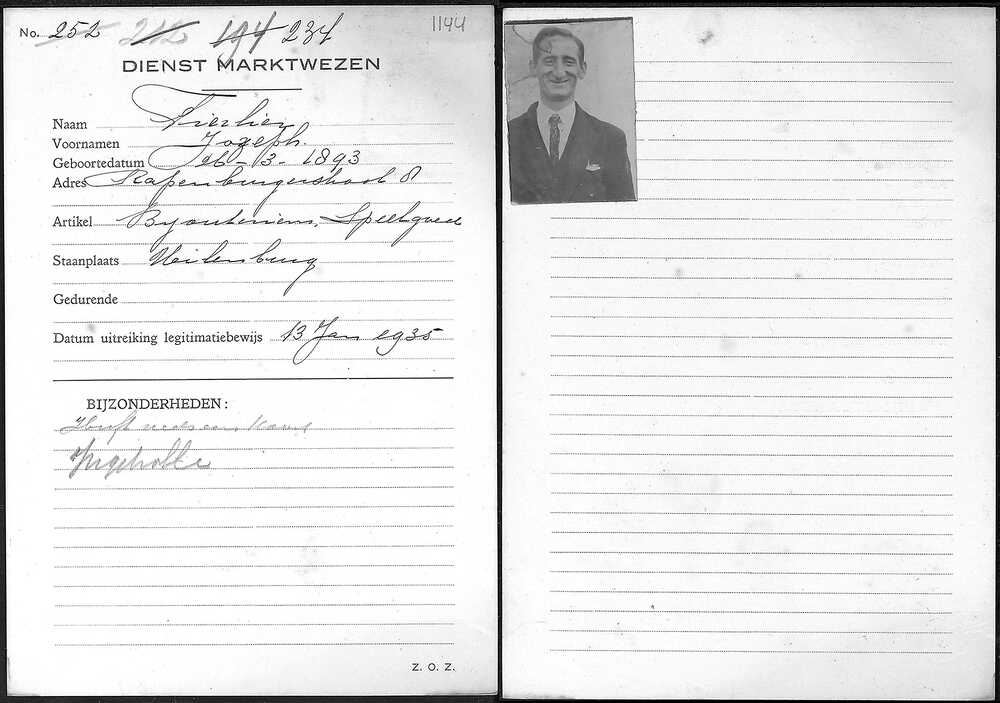 No. 252 212 194 234 1144
DIENST MARKTWEZEN
Naam Vierlier
Voornamen Jozeph.
Geboortedatum 26-3-1893
Adres Rapenburgerstraat 8
Artikel Byouterieen, Speelgoed
Staanplaats Uilenburg
Gedurende
Datum uitreiking legitimatiebewijs 13 Jan 1935
BIJZONDERHEDEN:
Heeft reeds een
Z. O. Z.